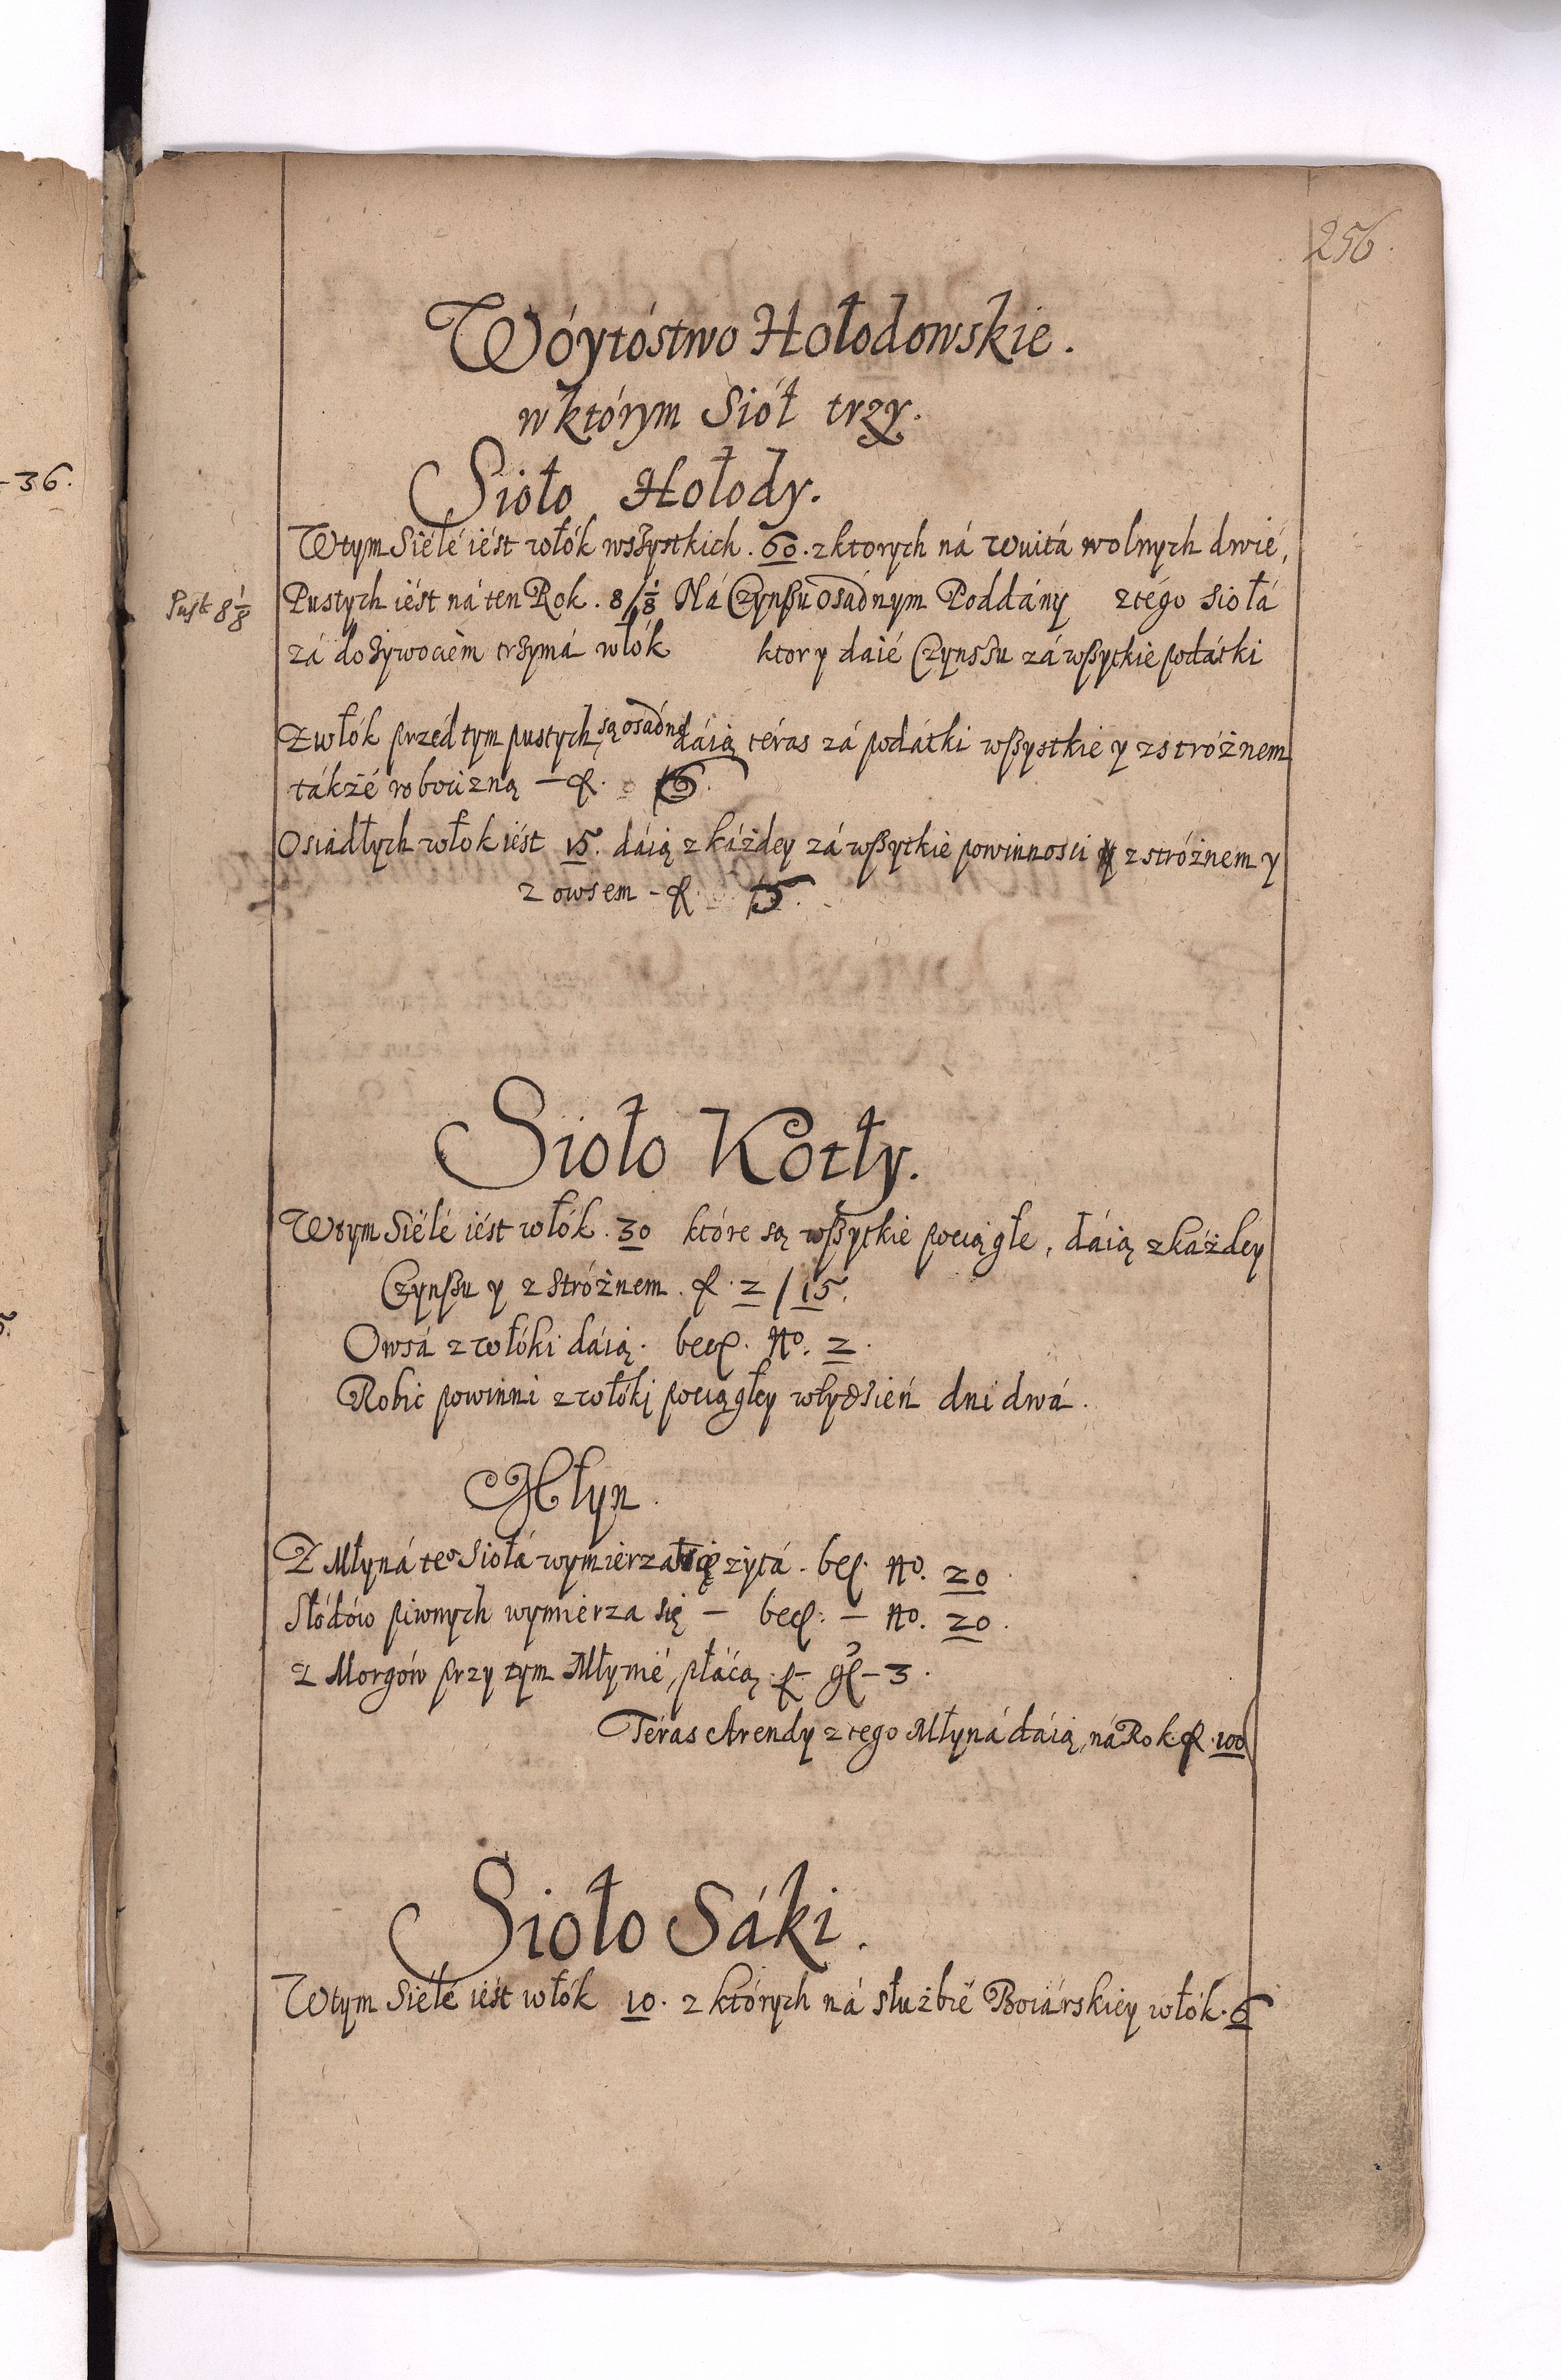 256.
36.
Wóytóstwo Hołodowskie.
w którym Siół trzy.
Sioło Hołody.
Wtym Siélé iést włók wszystkich. 60. z ktorych ná wuitá wolnych dwié,
Pust 8 1/8
Pustych iést ná ten Rok. 8/⅛ Ná Czynßu osadnym Poddány ztégo siołá
zá dożywociem trzymá włók ktory daié Czynssu zá wßytkié podátki
Zwłók przed tym pustych, są osadne dáią téras zá podátki wßystkié y zstróżnem
tákżé robocizną — f. 16.
Osiadłych włok iést 15. dáią z káżdey zá wßytkié powinnosci z stróżnem y
z owsem - f. 15.
Sioło Kotły.
Wtym Siélé iést włók. 30 które są wßytkié pociągłe, dáią zkáżdey
Czynßu y z Stróżnem. f. 2 / 15.
Owsá z włóki dáią. becz. No. 2.
Robic powinni z włóki pociągłey wtydzień dni dwá.
Młyn.
Z Młyná teo Siołá wymierza się żytá. becz. No. 20.
Słodów piwnych wymierza się — becz. — No. 20.
z Morgów przy tym Młynié, płácą f— gz — 3.
Téras Arendy z tego Młyná dáią, ná Rok f. 100
Sioło Sáki.
Wtym Siélé iést włók 10. z których ná służbié Boiárskiey włók. 6